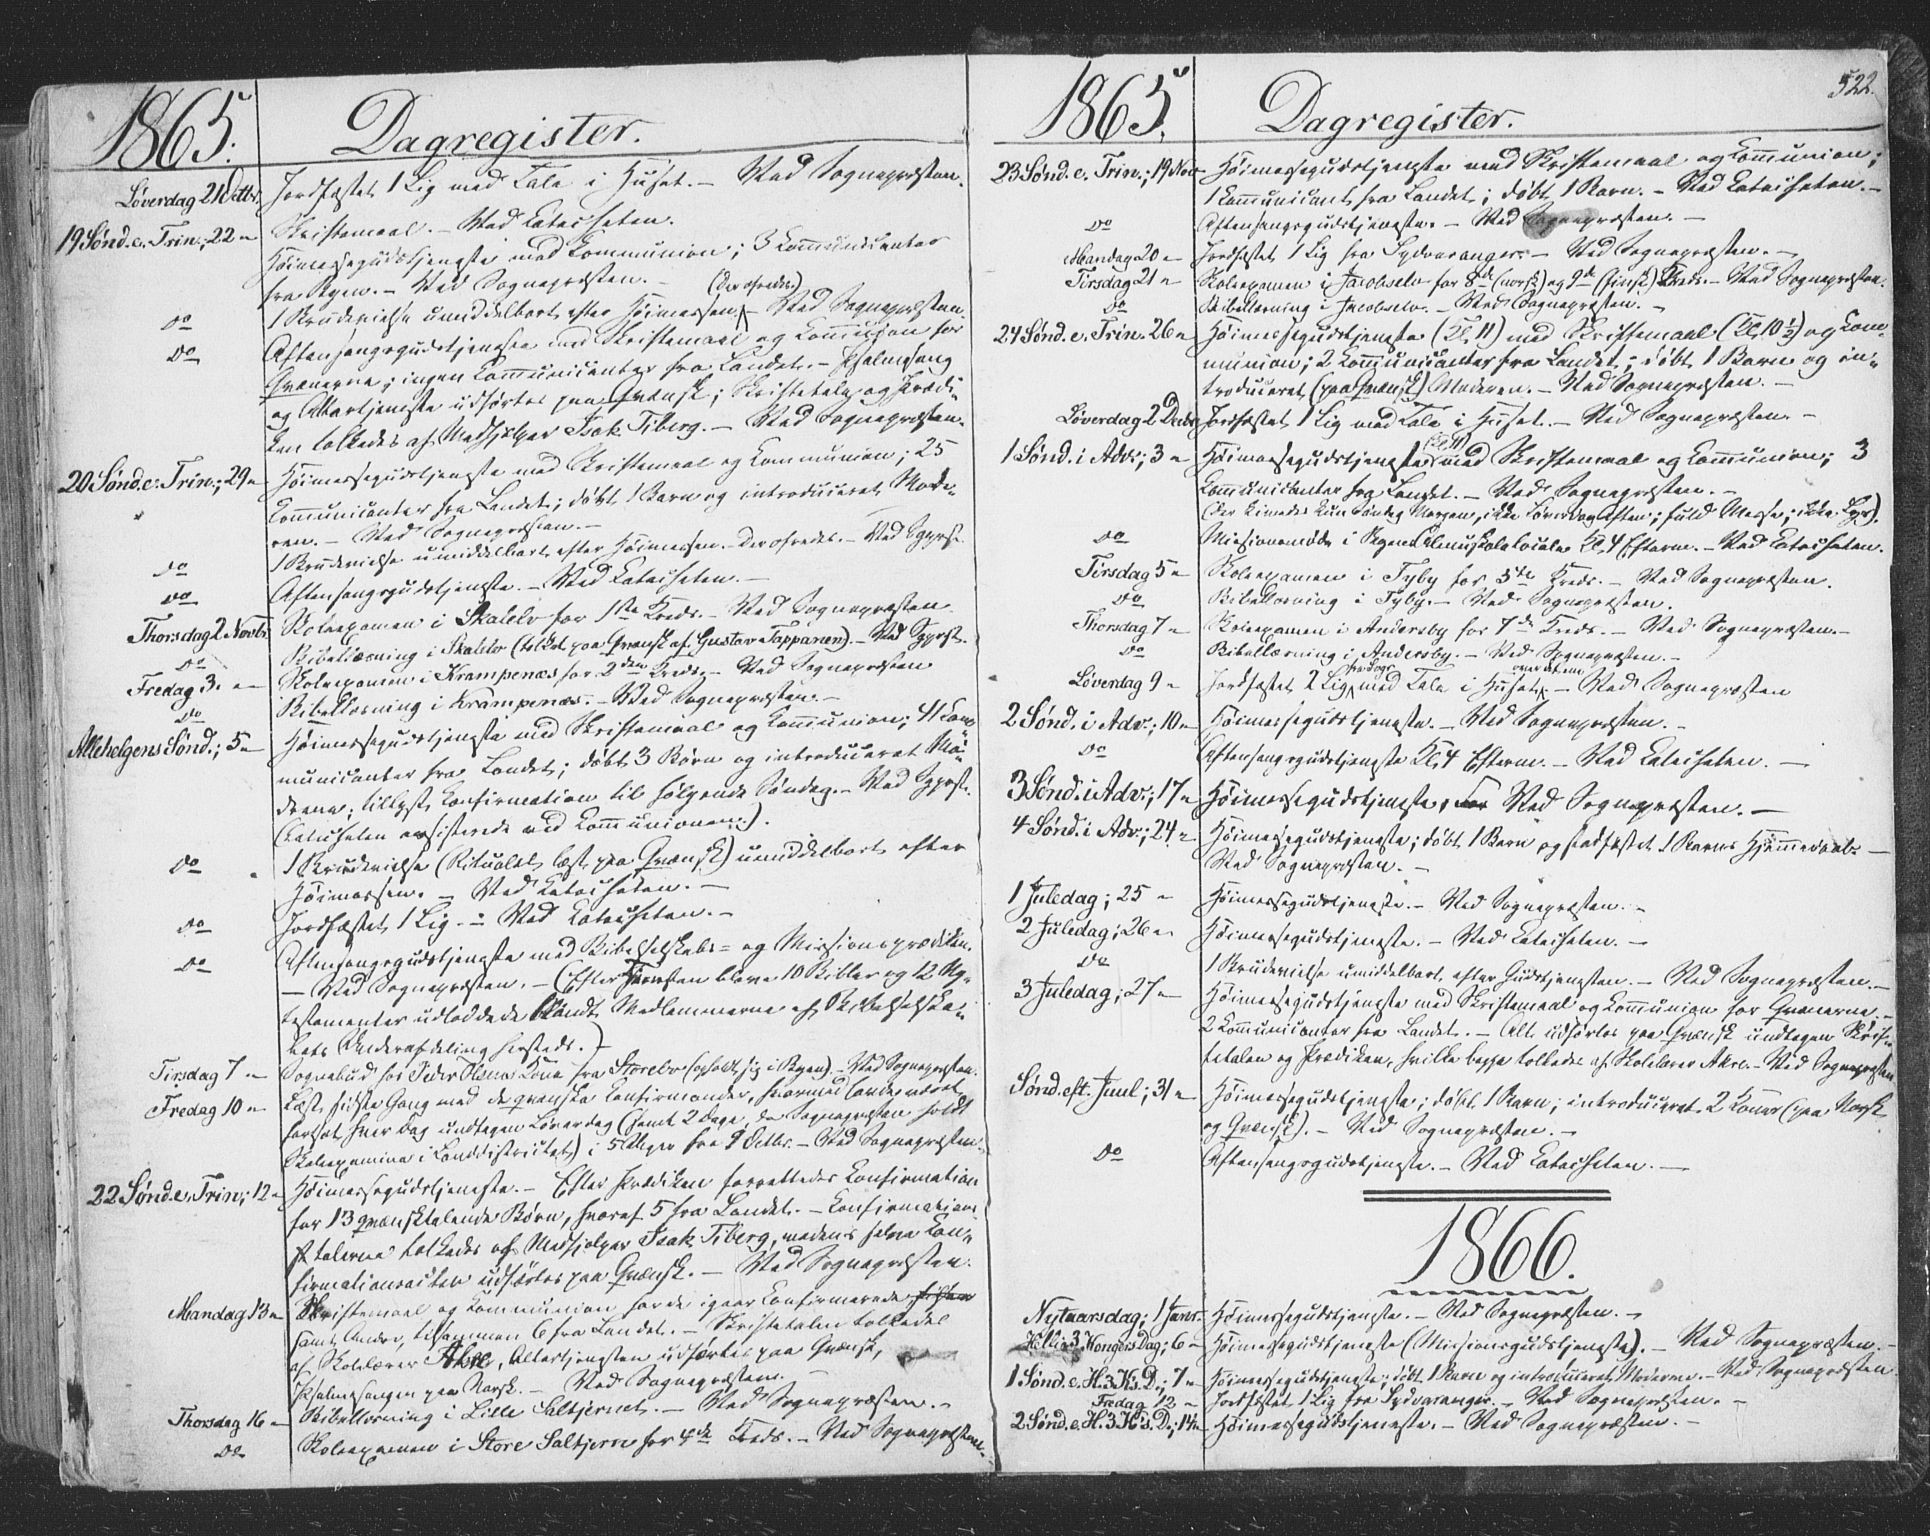 1865.
Dagregister.
Løverdag 21 Octbr. Jordfæstet 1 Lig med Tale i Huset. – Ved Sognepræsten.
19 Sønd. e. Trin.; 22 " Skriftemaal. – Ved Catecheten.
Høimessegudstjeneste med Communion; 3 Communicanter
fra Byen. – Ved Sognepræsten. –
(der ofredes)
do 1 Brudevielse umiddelbart efter Høimessen – Ved Sognepræsten.
do Aftensangsgudstjeneste med Skriftemaal og Communion for
Qvænerne; ingen Communicanter fra Landet. – Psalmesang
og Altertjeneste udførtes paa Qvænsk; Skriftetale og Prædi-
ken tolkedes af Medhjelper Isak Tiberg. – Ved Sognepræsten.
20 Sønd. e. Trin.; 29 " Høimessegudstjeneste med Skriftemaal og Communion; 25
Communicanter fra Landet; døbt 1 Barn og introduceret Mode-
ren. – Ved Sognepræsten. –
do 1 Brudevielse umiddelbart efter Høimessen. Der ofredes. – Ved Sgprst.
do Aftensangsgudstjeneste. – Ved Catecheten. –
Thorsdag 2 Novbr. Skoleexamen i Skalelv for 1ste Kreds. – Ved Sognepræsten.
do Bibellæsning i Skalelv (tolket paa Qvænsk af Gustav Tappanen). – Ved Sgprst.
Fredag 3. " Skoleexamen i Krampenæs for 2den Kreds. – Ved Sognepræsten
do Bibellæsning i Krampenæs. – Ved Sognepræsten. –
Allehelgens Sønd.; 5 " Høimessegudstjeneste med Skriftemaal og Communion; 41 Com-
municanter fra Landet; døbt 3 Børn og introduceret Mö-
drene; tillyst Confirmation til følgende Søndag. – Ved Sgprst.
(Catecheten assisterede ved Communionen).
do 1 Brudevielse (Ritualet læst paa Qvænsk) umiddelbart efter
Høimessen. – Ved Catecheten. –
do Jordfæstet 1 Lig. – Ved Catecheten. –
do Aftensangsgudstjeneste med Bibelselskabs- og Missionsprædiken.
– Ved Sognepræsten. – (Efter Tjenesten bleve 10 Bibler og 12 Ny-
testamenter udloddede blandt Medlemmerne af Bibelselska-
bets Underafdeling hersteds.) –
Tirsdag 7 " Sognebud hos Peder Olsens Kone fra Storelv (opholdt sig i Byen). – Ved Sognepræsten.
Fredag 10 " Læst sidste Gang med de qvænske Confirmander, hvormed Candt været
fortsat hver Dag undtagen Løverdag (samt 2 Dage, da Sognepræsten holdt
Skoleexamina i Landdistrictet) i 5 Uger fra 9 Octbr. – Ved Sognepræsten.
22 Sønd. e. Trin.; 12 " Høimessegudstjeneste. – Efter Prædiken forrettedes Confirmation
for 13 qvænsktalende Børn, hvoraf 5 fra Landet. – Confirmations-
talerne tolkedes af Medhjelper Isak Tiberg, medens selve Con-
firmationsacten udførtes paa Qvænsk. – Ved Sognepræsten.
Mandag 13 " Skriftemaal og Communion for de igaar Confirmerede
samt Andre, tilsammen 6 fra Landet. – Skriftetalen tolkedes
af Skolelærer Akre, Altertjenesten udførtes paa Qvænsk,
Psalmesangen paa Norsk. – Ved Sognepræsten. –
Thorsdag 16 " Bibellæsning i Lille Saltjernet. – Ved Sognepræsten. –
do Skoleexamen i Store Saltjern for 4de Kreds. – Ved Sognepræsten. –
1865.
Dagregister.
522.
23 Sønd. e. Trin.; 19 Nov. Høimessegudstjeneste med Skriftemaal og Communion;
1 Communicant fra Landet; døbt 1 Barn. – Ved Catecheten. –
do Aftensangsgudstjeneste. – Ved Sognepræsten. –
Mandag 20 " Jordfæstet 1 Lig fra Sydvaranger. – Ved Sognepræsten. –
Tirsdag 21 " Skoleexamen i Jacobselv for 8de (norsk) og 9de (finsk) Kreds. – Ved Sognepræsten.
do Bibellæsning i Jacobselv. – Ved Sognepræsten. –
24 Sønd. e. Trin. 26 " Høimessegudstjeneste (Kl. 11) med Skriftemaal (Kl. 10 ½) og Com-
munion; 2 Communicanter fra Landet; døbt 1 Barn og in-
troduceret (paa Qvænsk) Moderen. – Ved Sognepræsten. –
Løverdag 2 Decbr. Jordfæstet 1 Lig med Tale i Huset. – Ved Sognepræsten. –
(Kl. 11)
1 Sønd. i Adv.; 3 " Høimessegudstjeneste med Skriftemaal og Communion; 3
Communicanter fra Landet. – Ved Sognepræsten. –
(Der kimedes kun Søndag Morgen, ikke Løverdag Aften; fuld Messe; ikke Lys).
do Missionsmøde i Byens Almueskolelocale Kl. 4 Efterm. – Ved Catecheten.
Tirsdag 5 " Skoleexamen i Tyby for 5te Kreds. – Ved Sognepræsten.
do Bibellæsning i Tyby. – Ved Sognepræsten.
Thorsdag 7 " Skoleexamen i Andersby for 7de Kreds. – Ved Sognepræsten. –
do Bibellæsning i Andersby. – Ved Sognepræsten. –
Løverdag 9 " Jordfæstet 2 Lig med Tale i Huset – Ved Sognepræsten
2 Sønd. i Adv.; 10 " Høimessegudstjeneste. – Ved Sognepræsten. –
do Aftensangsgudstjeneste Kl. 4 Efterm. – Ved Catecheten. –
3 Sønd. i Adv.; 17 " Høimessegudstjeneste, Ved Sognepræsten. –
4 Sønd. i Adv.; 24 " Høimessegudstjeneste; døbt 1 Barn og stadfæstet 1 Barns Hjemmedaab. –
Ved Sognepræsten. –
1 Juledag; 25 " Høimessegudstjeneste. – Ved Sognepræsten. –
2 Juledag; 26 " Høimessegudstjeneste. – Ved Catecheten. –
do 1 Brudevielse umiddelbart efter Gudstjenesten. – Ved Sognepræsten. –
3 Juledag; 27 " Høimessegudstjeneste med Skriftemaal og Communion for Qvænerne. –
2 Communicanter fra Landet. – Alt udførtes paa Qvænsk undtagen Skrif-
tetalen og Prædiken, hvilke begge tolkedes af Skolelærer Akre. – Ved Sognepræsten
Sønd. eft. Juul; 31 " Høimessegudstjeneste; døbt 1 Barn; introduceret 2 Koner (paa Norsk
og Qvænsk). – Ved Sognepræsten. –
do Aftensangsgudstjeneste. – Ved Catecheten. –
1866.
Nytaarsdag; 1 Janr. Høimessegudstjeneste. – Ved Sognepræsten. –
Hellig 3 Kongers Dag; 6 " Høimessegudstjeneste (Missionsgudstjeneste). – Ved Sognepræsten. –
1 Sønd. e. H. 3 K's. D.; 7 " Høimessegudstjeneste; døbt 1 Barn og introduceret Moderen. – Ved Sognepræsten
Fredag 12 " Jordfæstet 1 Lig fra Sydvaranger. – Ved Sognepræsten. –
2 Sønd. e. H. 3 K's. D.; 14 " Høimessegudstjeneste. – Ved Sognepræsten. –